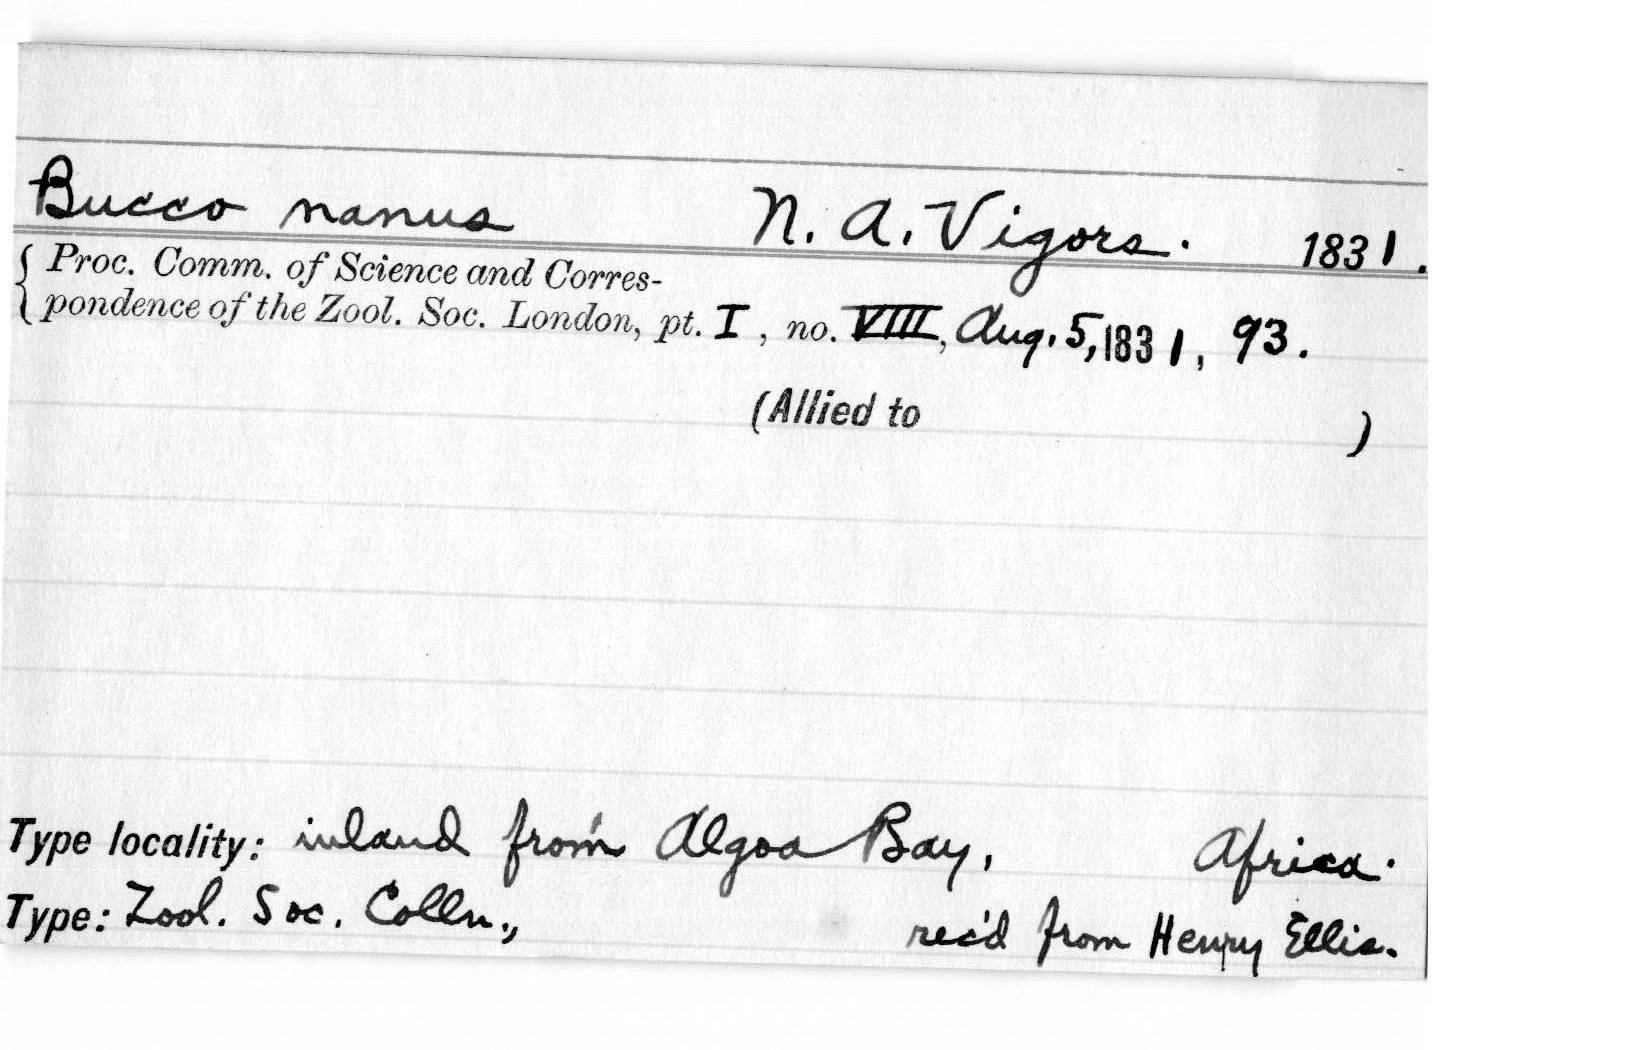 Bucco nanus N. A. Vigors. 1831.
{ Proc. Comm. of Science and Corres-
pondence of the Zool. Soc. London, pt. I, no. VIII, Aug. 5, 1831, 93.
(Allied to )
Type locality: inland from Algoa Bay, Africa.
Type: Zool. Soc. Colln., rec'd from Henry Ellis.